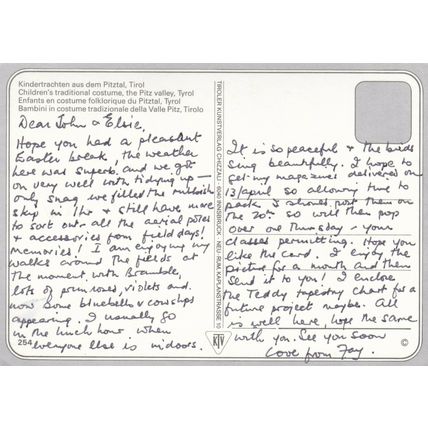 Kindertrachten aus dem Pitztal, Tirol
Children's traditional costume, the Pitz valley, Tyrol
Enfants en costume folklorique du Pitztal, Tyrol
Bambini in costume tradizionale della Valle Pitz, Tirolo
Dear John & Elsie.
Hope you had a pleasant
Easter break, the weather
here was superb and we got
on very well worth tidying up -
only snag we filled the rubbish
skip in 1hr & still have more
to sort out - all the aerial poles
& accessories from field days!
memories! I am enjoying my
walks around the fields at
the moment, with Bramble,
lots of primroses, violets and
now some bluebells & cowslips
appearing. I usually go
in the lunch hour when
everyone else is indoors.
254
TIROLER KUNSTVERLAG CHIZZALI · 6040 INNSBRUCK · NEU-RUM, KAPLANSTRASSE 10
KTV
It is so peaceful & the birds
sing beautifully. I hope to
get my magazines delivered on
13/april so allowing time to
pack I should post them on
the 20th so will then pop
over one Thursday - your
classes permitting. Hope you
like the card. I enjoy the
picture for a month and then
send it to you! I enclose
the Teddy tapestry chart for a
future project maybe. All
is well here, hope the same
with you. See you soon
Love from Fay.
©